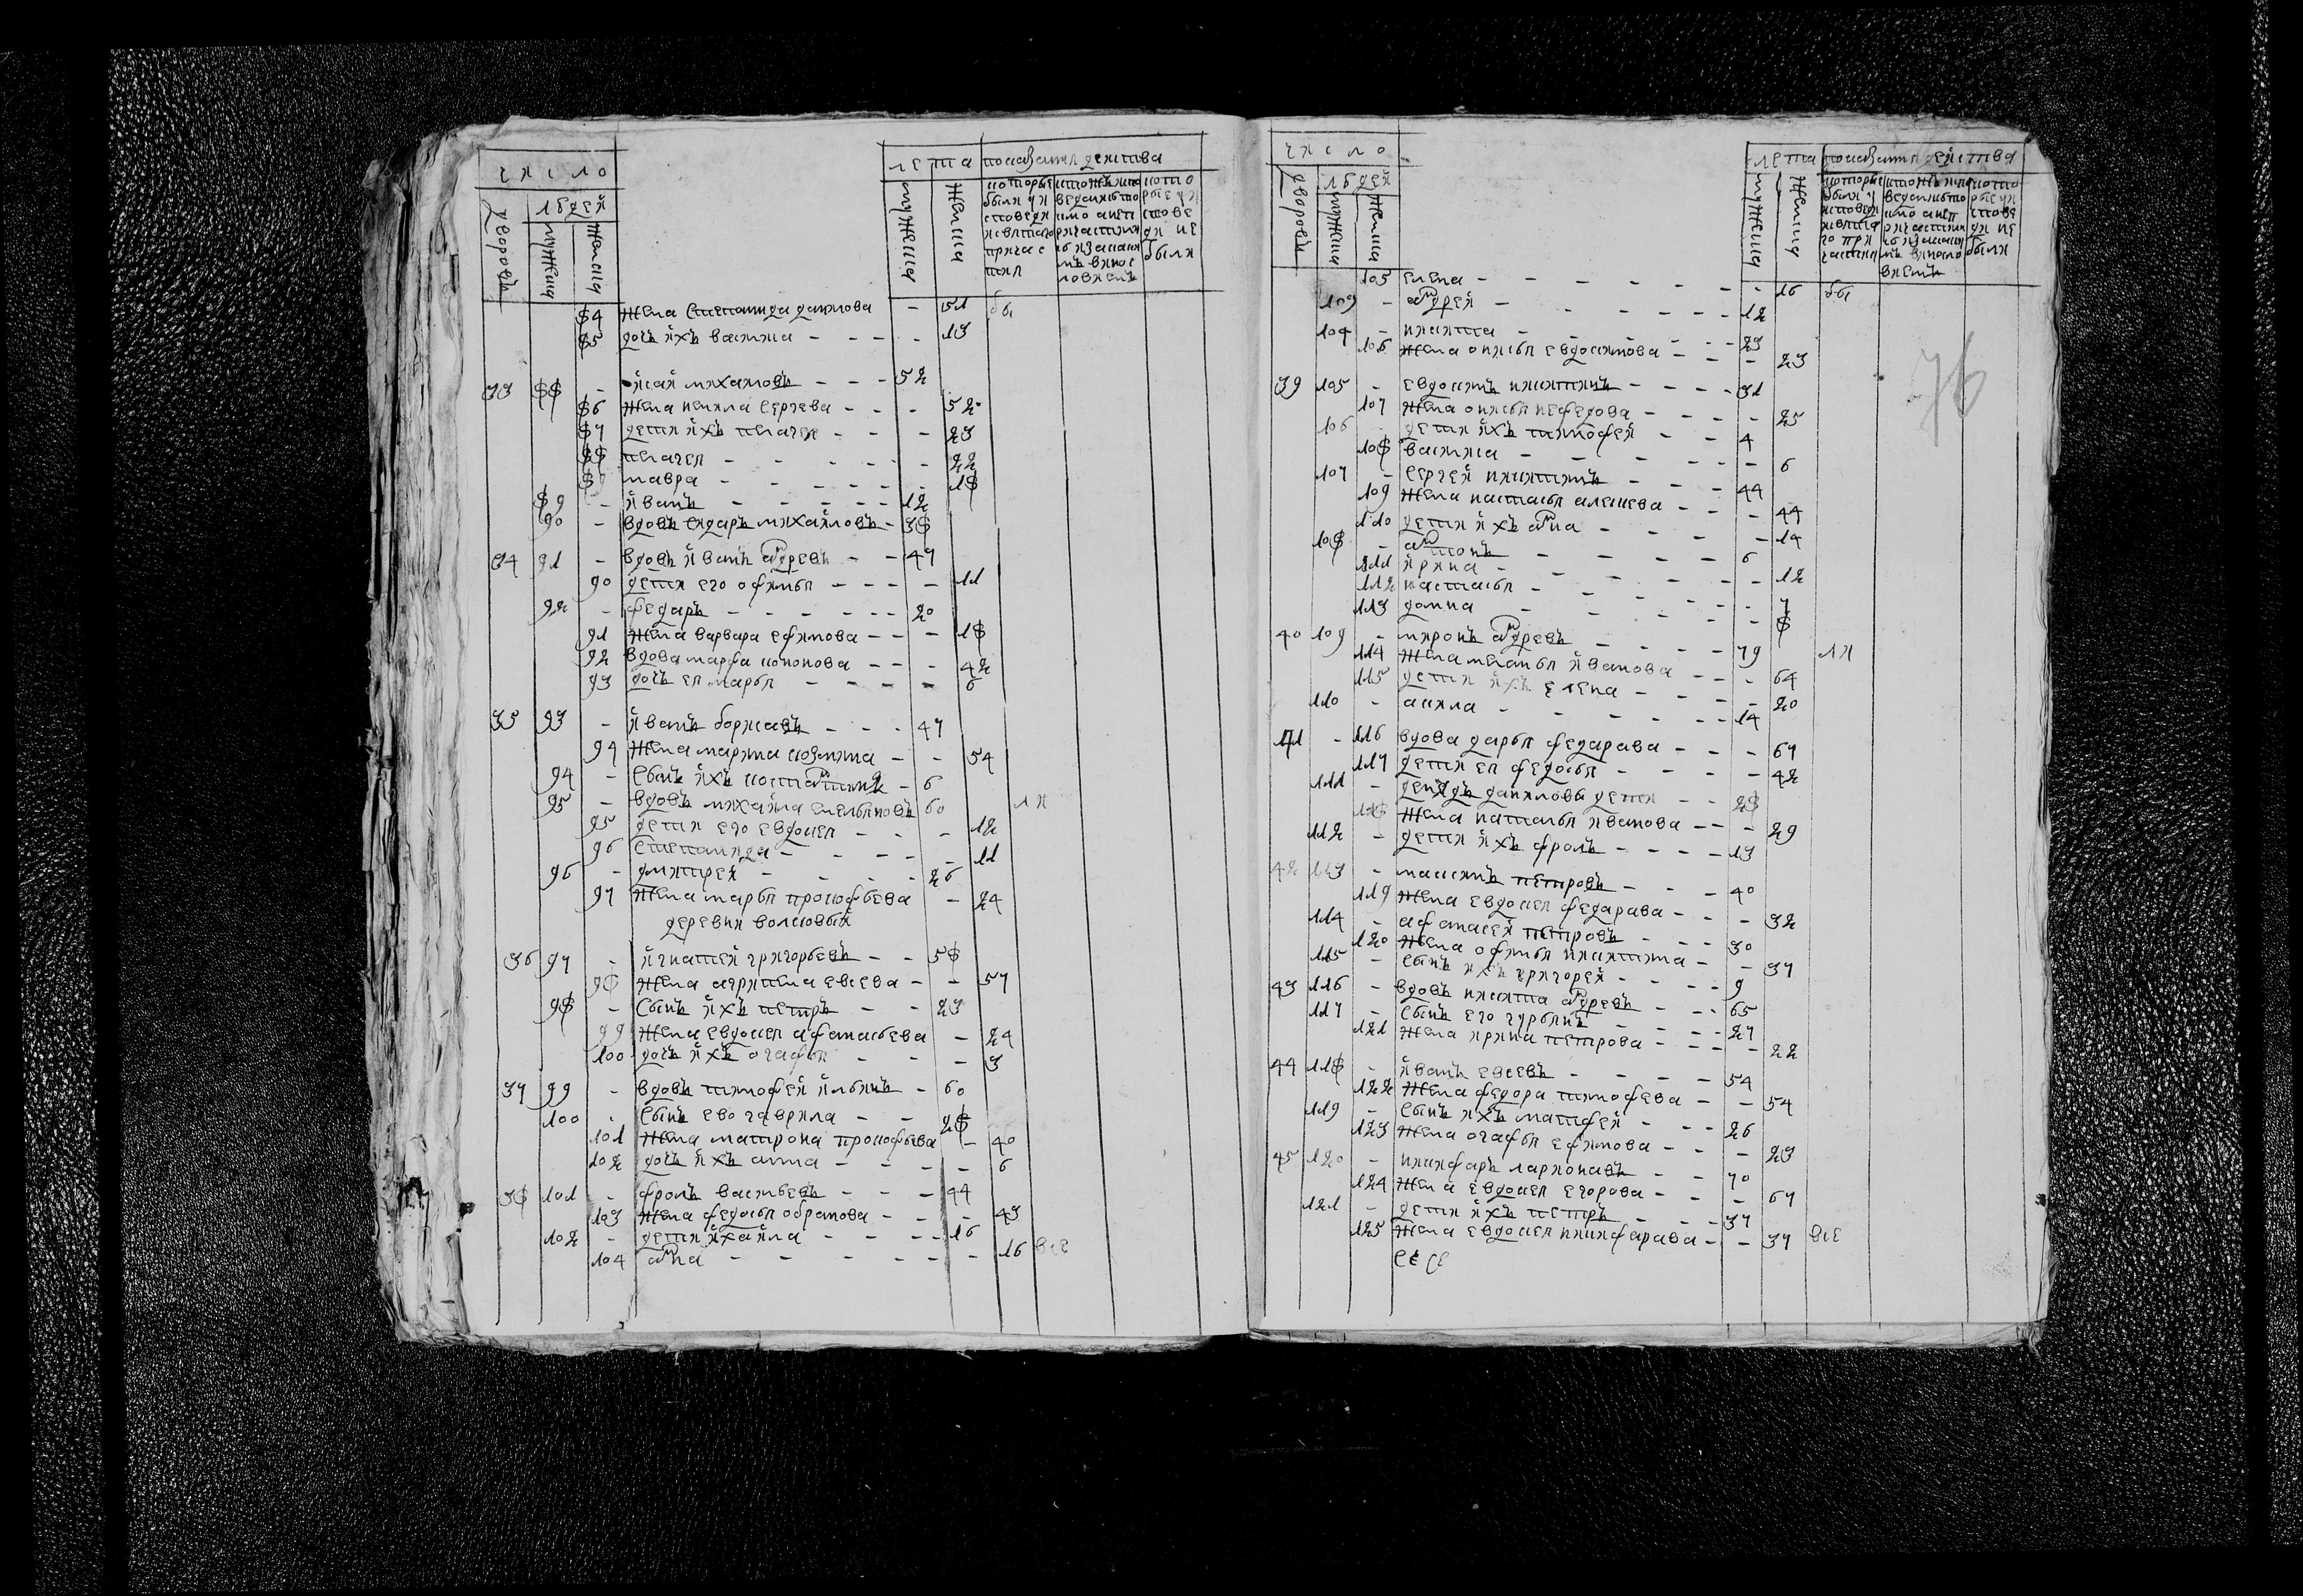 число
лета показания действа
людей
дворовъ
мужеска
женска
мужеска
женска
которые были у исповеди и святаго причастия
которые у исповеди не были
84 жена степанида данилова - 51 бы
85 дочь ихъ василиса - - - - 13
33 88 - исай михаиловъ - - - 52
86 жена ненила сергева - - - 52
87 дети ихъ пелагея - - - 23
88 пелагея - - - - - 22
89 мавра - - - - - - 18
89 - иванъ - - - - - 12
90 - вдовъ сидаръ михайловъ - 38
34 91 - вдовъ иванъ андревъ - - 47
90 дети его офимья - - - - 11
92 - федаръ - - - - - - 20
91 жена варвара ефимова - - - 18
92 вдова марфа кононова - - - 42
93 дочь ея марья - - - - - 6
35 93 - иванъ борисавъ - - - 47
94 жена марина козмина - - 54
94 - сынъ ихъ костантинъ - 6
95 - вдовъ михайла емельяновъ 60 ли
95 дети его евдокея - - - 12
96 степанида - - - - - 11
96 - дмитрей - - - - 26
97 жена марья прокофьева - 24
деревни волковый
36 97 - игнатей григорьевъ - - 58
98 жена агрипена евсева - - 57
98 - сынъ ихъ петръ - - 23
99 жена евдокея афанасьева - 24
100 дочь ихъ огафья - - - 3
37 99 - вдовъ тимофей ильинъ - 60
100 - сынъ ево гаврила - - 28
101 жена матрона прокофьева - 40
102 дочь ихъ анна - - - - 6
38 101 - фролъ васильевъ - - - 44
103 жена федосья обрамова - - - 43
102 - дети ихъ айла - - - - 16
104 анна - - - - - - 16 все
число
лета показания действа
людей
дворовъ
мужеска
женска
мужеска
женска
были
105 елена - - - - - - - 16 бы
103 - андрей - - - - - - 12
104 - никита - - - - - - 23
106 жена онисья евдокимова - - - 23
39 105 - евдокимъ никитинъ - - - - 31
107 жена онисья нефедова - - - - 25
106 дети ихъ тимофей - - 4
108 василиса - - - - - - 6
107 - сергей никитинъ - - - 44
109 жена настасья алешева - - - 44
110 дети ихъ анна - - - - - 14
108 - антонъ - - - - 6
111 ирина - - - - - - 12
112 настасья - - - - - 7
113 домна - - - - - 8
40 109 - миронъ андревъ - - - - 79 ли
114 жена меланья иванова - - - 64
115 дети ихъ елена - - - - 20
110 - акила - - - - - - 14
41 - 116 вдова дарья федарава - - - 67
117 дети ея федосья - - - - 42
111 - данилавы дети - - 28
118 жена наталья иванова - - - 29
112 - дети ихъ фролъ - - - - 13
42 113 - максимъ петровъ - - - 40
119 жена евдокея федарава - - - 32
114 - афанасей петровъ - - - 30
120 жена офимья никитина - - 37
115 - сынъ ихъ григорей - - - - 9
43 116 - вдовъ никита андревъ - - - 65
117 - сынъ его гурьянъ - - - - 27
121 жена ирина петрова - - - - 22
44 118 - иванъ евсевъ - - - - - 54
122 жена федора тимофева - - 54
119 - сынъ ихъ матфей - - - 26
123 жена огафья ефимова - - - 23
45 120 - никифаръ ларионавъ - - 70
124 жена евдокея егорова - - - 67
121 - дети ихъ петръ - - - 37
125 жена евдокея никифарава - - 37 все
76